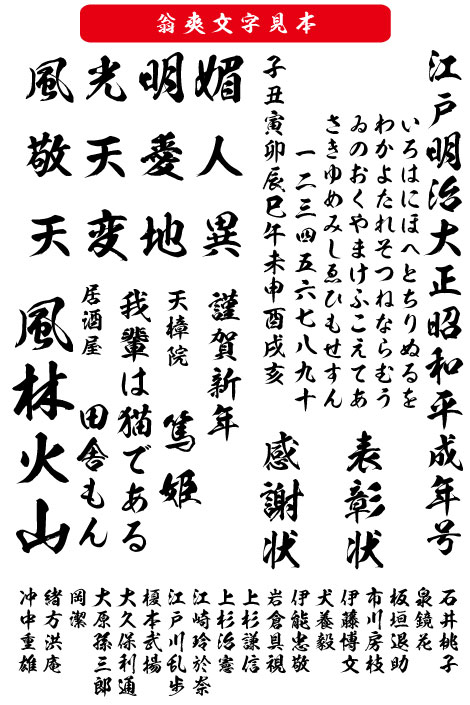 翁爽文字見本
江戸明治大正昭和平成年号
いろはにほへとちりぬるを
わかよたれそつねならむう
ゐのおくやまけふこえてあ
さきゆめみしゑひもせすん
一二三四五六七八九十
子丑寅卯辰巳午未申酉戌亥
表彰状
感謝状
風光明媚
敬天愛人
天変地異
謹賀新年
天樟院 篤姫
我輩は猫である
居酒屋 田舎もん
風林火山
石井桃子
泉鏡花
板垣退助
市川房枝
伊藤博文
犬養毅
伊能忠敬
岩倉具視
上杉謙信
上杉治憲
江崎玲於奈
江戸川乱歩
榎本武揚
大久保利通
大原孫三郎
岡潔
緒方洪庵
冲中重雄